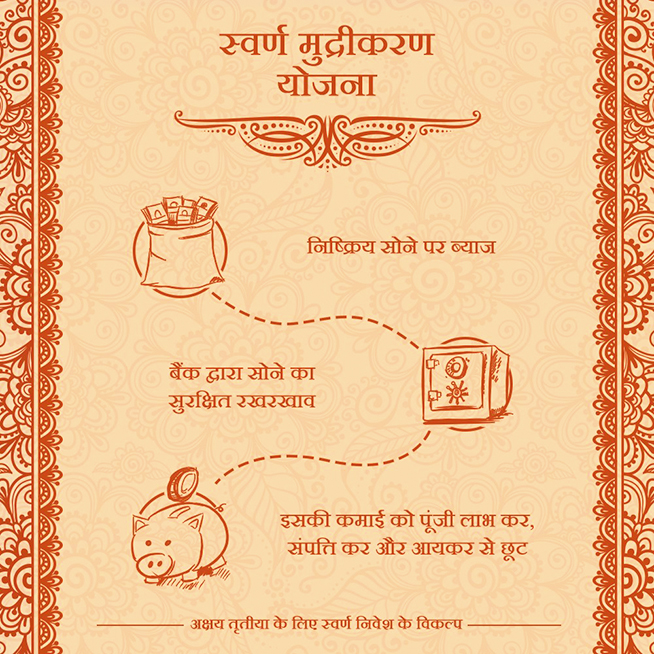 स्वर्ण मुद्रीकरण
योजना
निष्क्रिय सोने पर ब्याज
बैंक द्वारा सोने का
सुरक्षित रखरखाव
इसकी कमाई को पूंजी लाभ कर,
संपत्ति कर और आयकर से छूट
अक्षय तृतीया के लिए स्वर्ण निवेश के विकल्प